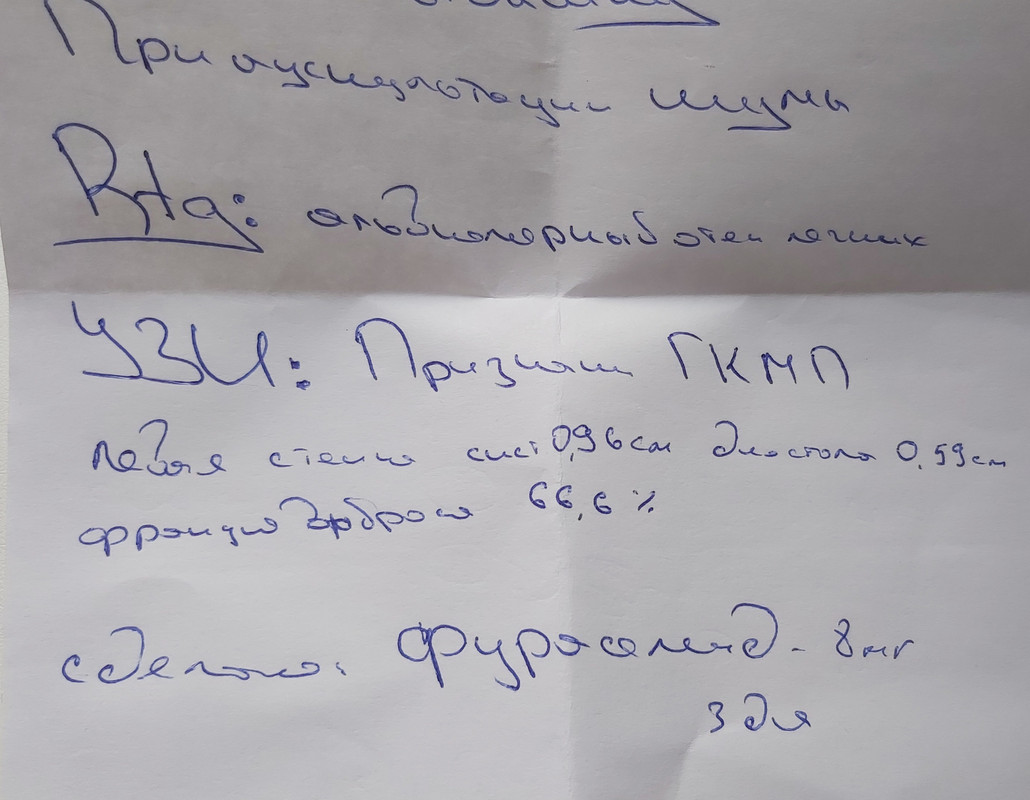 При аускультации шумы
Rtg: альвеолярный отек легких
УЗИ: Признаки ГКМП
левая стенка сист 0,96 см диастола 0,59 см
фракция выброса 66,6 %
сделано: Фуросемид - 8 мг
3 дня